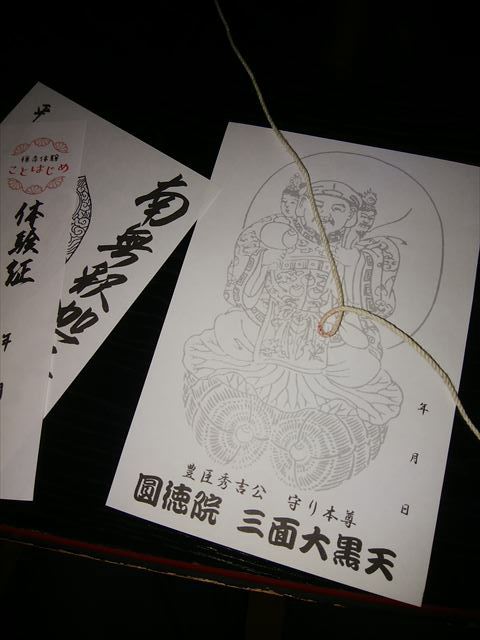 禅寺体験
ことはじめ
体験証
年
月
南無釈迦
年
月
日
豊臣秀吉公 守り本尊
圓徳院 三面大黒天